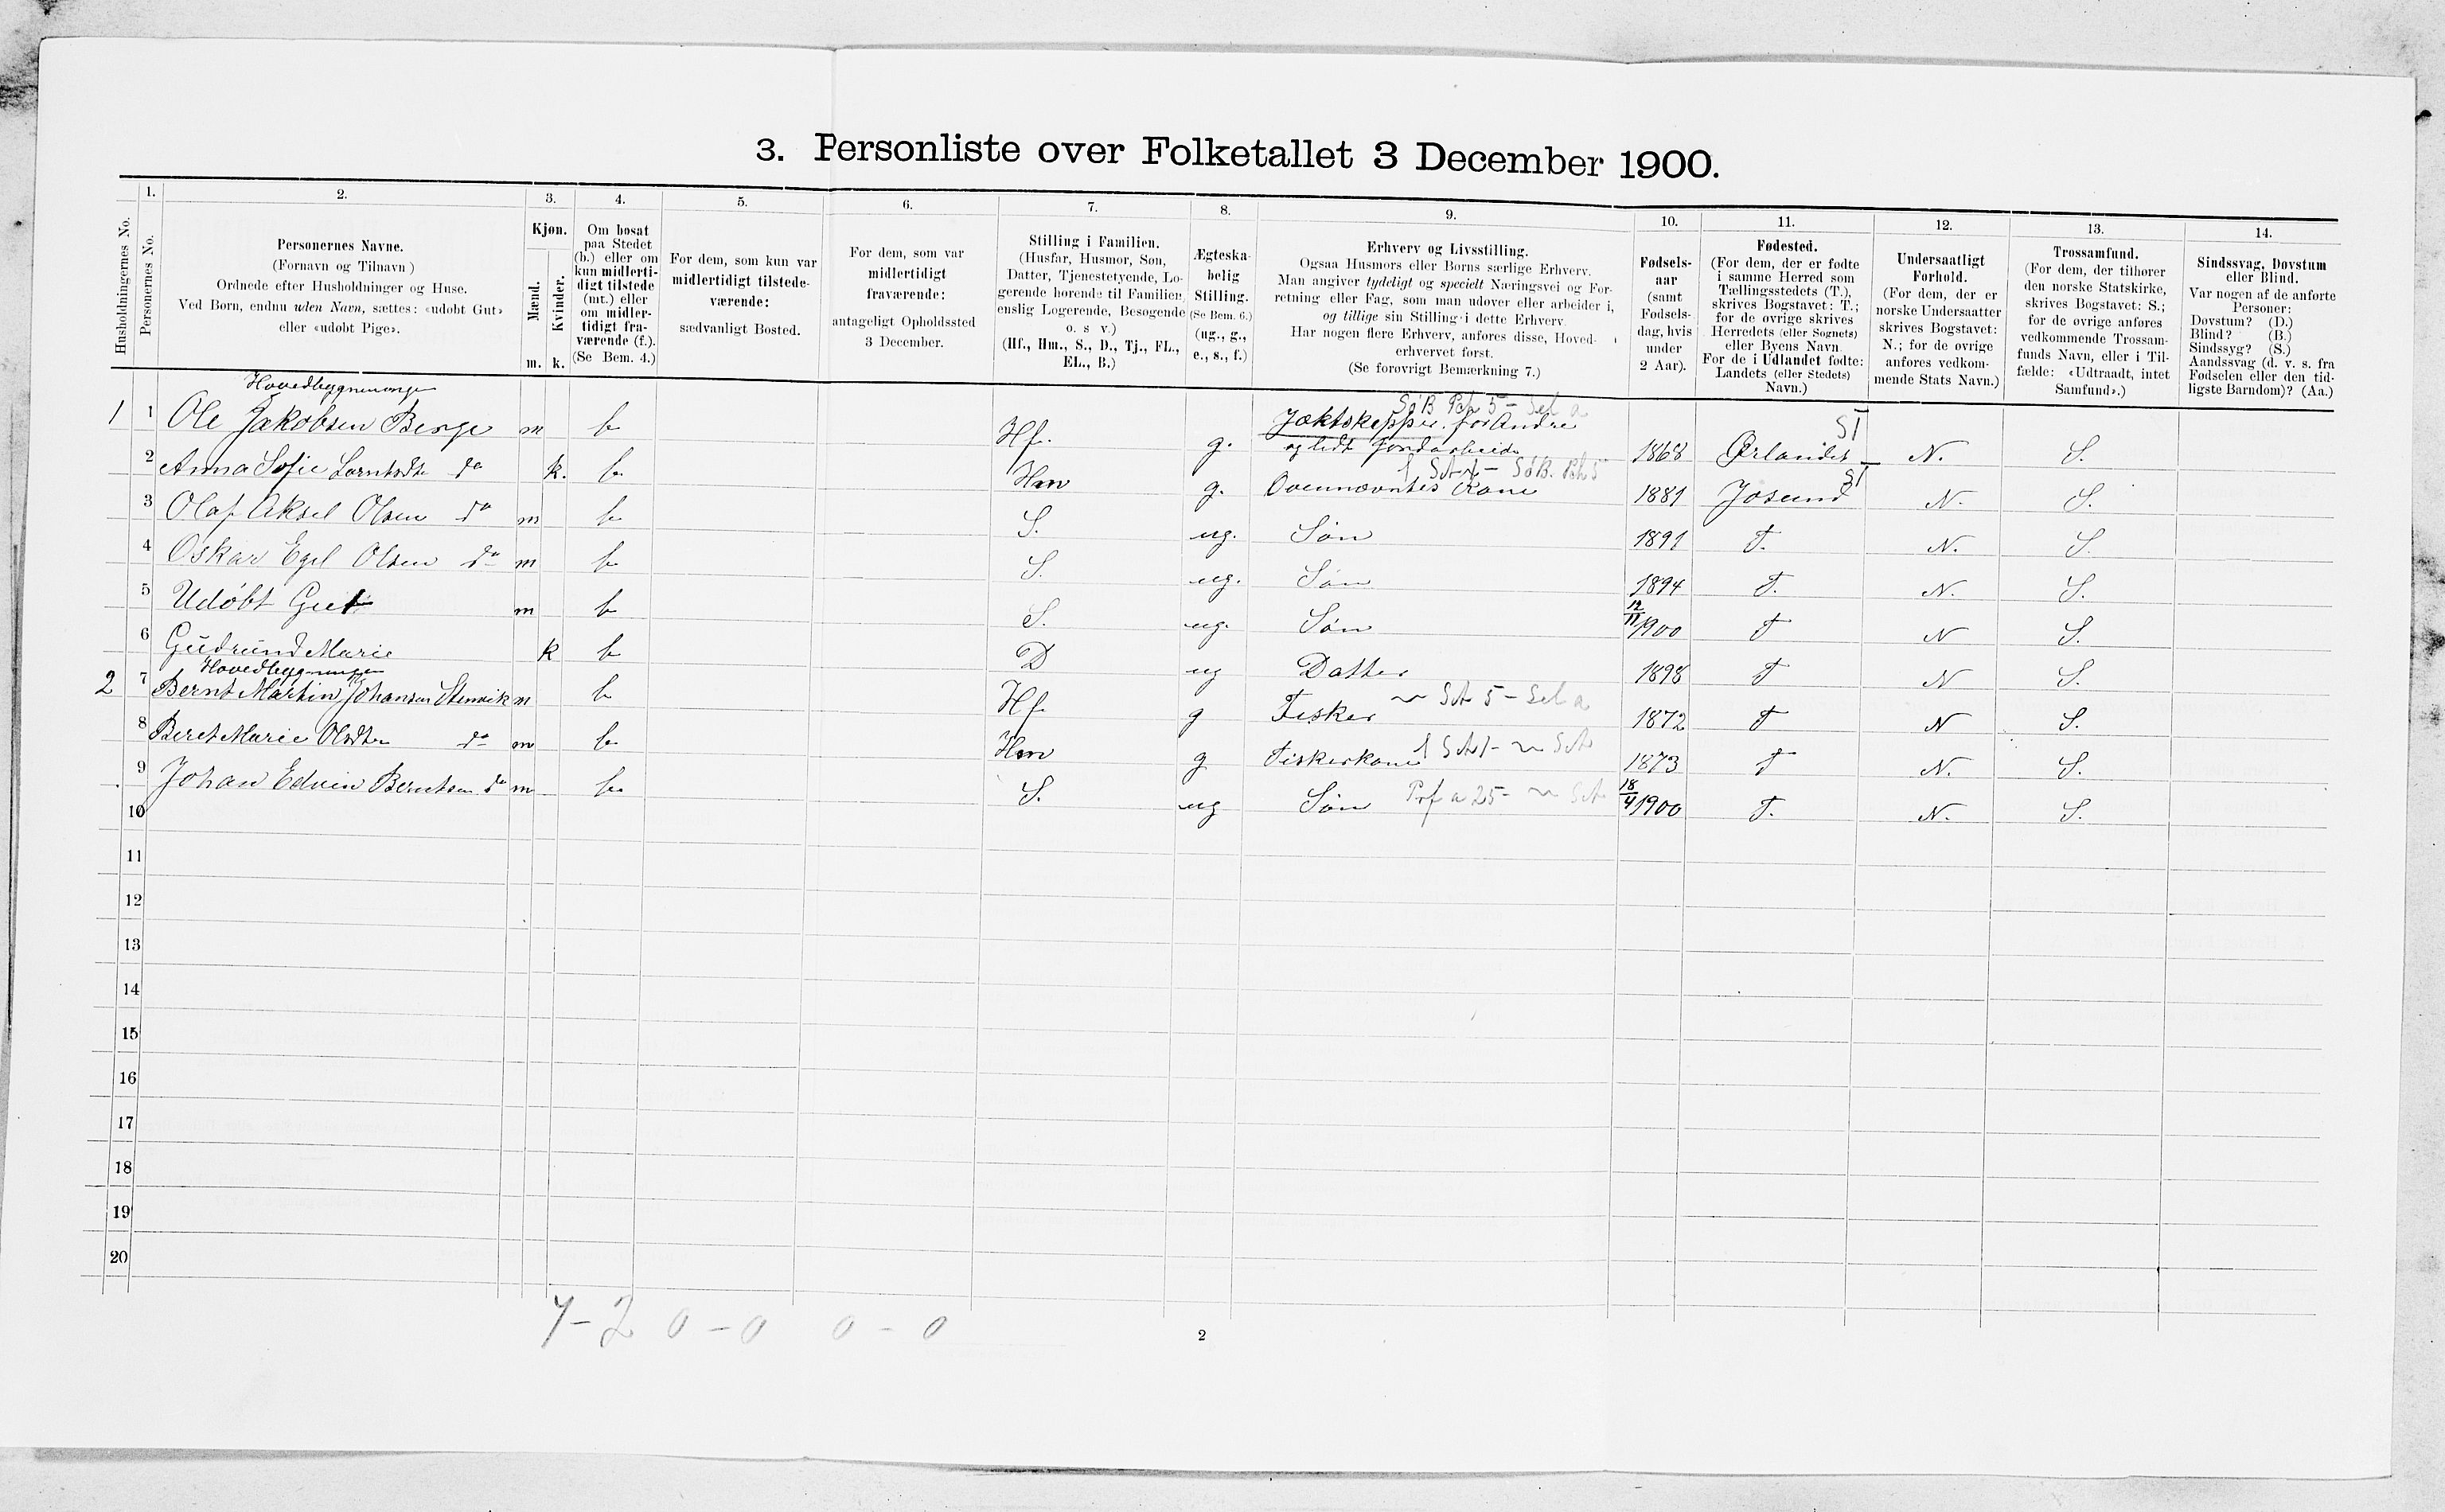 3. Personliste over Folketallet 3 December 1900.
1. 2. 3. 4. 5. 6. 7. 8. 9. 10. 11. 12. 13. 14.
Husholdningernes No.
Personernes No.
Personernes Navne.
(Fornavn og Tilnavn)
Ordnede efter Husholdninger og Huse.
Ved Børn, endnu uden Navn, sættes: «udøbt Gut»
eller «udøbt Pige».
Kjøn.
Mænd.
Kvinder.
m. k.
Om bosat
paa Stedet
(b.) eller om
kun midlerti-
digt tilstede
(mt.) eller
om midler-
tidigt fra-
værende (f.).
(Se Bem. 4.)
For dem, som kun var
midlertidigt tilstede-
værende:
sædvanligt Bosted.
For dem, som var
midlertidigt
fraværende:
antageligt Opholdssted
3 December.
Stilling i Familien.
(Husfar, Husmor, Søn,
Datter, Tjenestetyende, Lo-
gerende hørende til Familien,
enslig Logerende, Besøgende
o. s. v.)
(Hf., Hm., S., D., Tj., FL.,
EL., B.)
Ægteska-
belig
Stilling.
(Se Bem. 6.)
(ug., g.,
e., s., f.)
Erhverv og Livsstilling.
Ogsaa Husmors eller Børns særlige Erhverv.
Man angiver tydeligt og specielt Næringsvei og For-
retning eller Fag, som man udøver eller arbeider i,
og tillige sin Stilling i dette Erhverv.
Har nogen flere Erhverv, anføres disse, Hoved-
erhvervet først.
(Se forøvrigt Bemærkning 7.)
Fødsels-
aar
(samt
Fødsels-
dag, hvis
under
2 Aar).
Fødested.
(For dem, der er fødte
i samme Herred som
Tællingsstedets (T.),
skrives Bogstavet: T.;
for de øvrige skrives
Herredets (eller Sognets)
eller Byens Navn.
For de i Udlandet fødte:
Landets (eller Stedets)
Navn.)
Undersaatligt
Forhold.
(For dem, der er
norske Undersaatter
skrives Bogstavet:
N.; for de øvrige
anføres vedkom-
mende Stats Navn.)
Trossamfund.
(For dem, der tilhører
den norske Statskirke,
skrives Bogstavet: S.;
for de øvrige anføres
vedkommende Trossam-
funds Navn, eller i Til-
fælde: «Udtraadt, intet
Samfund».)
Sindssvag, Døvstum
eller Blind.
Var nogen af de anførte
Personer:
Døvstum? (D.)
Blind? (B.)
Sindssyg? (S.)
Aandssvag (d. v. s. fra
Fødselen eller den tid-
ligste Barndom)? (Aa.)
Hovedbygningen
1 1 Ole Jakobsen Berge m b Hf. g. Jæktskipper for Andre og lidt Jordarbeide 1868 Ørlandet ST N. S.
2 Anna Sofie Lorntsdtr do k. b Hm g. Ovennævntes Kone 1881 Jøsund ST N. S.
3 Olaf Aksel Olsen do m b S. ug. Søn 1891 T. N. S.
4 Oskar Egil Olsen do m b S. ug. Søn 1894 T. N. S.
5 Udøbt Gut m b S. ug. Søn 12/11 1900 T N S.
6 Gudrund Marie k b D ug Datter 1898 T N S.
Hovedbygningen
2 7 Bernt Martin Johansen Stenvik m b Hf. g Fisker 1872 T N S.
8 Beret Marie Olsdtr do m b Hm g Fiskerkone 1873 T N. S.
9 Johan Edvin Berntsen do m b S. ug Søn 18/4 1900 T. N. S.
10
11
12
13
14
15
16
17
18
19
20
7-2 0-0 0-0
2